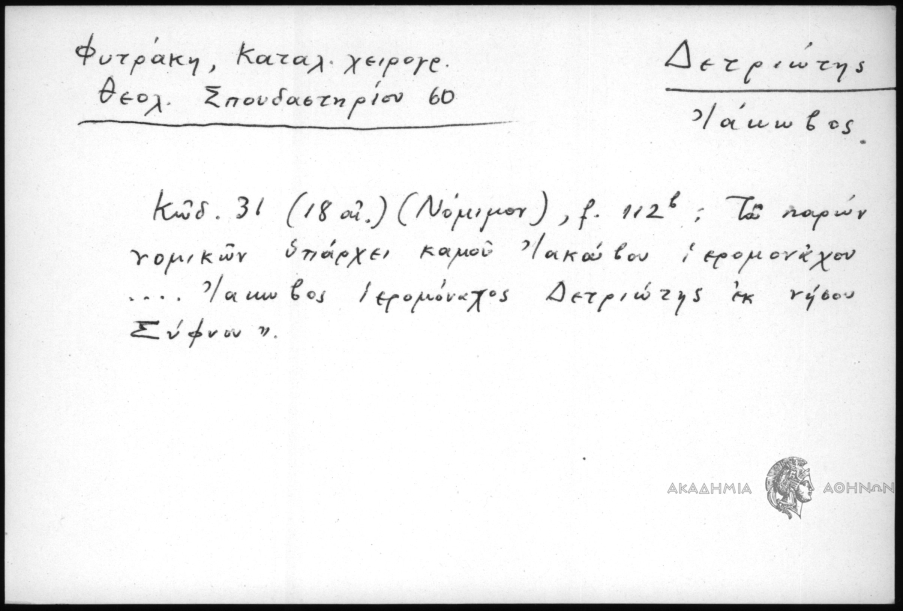 Φυτράκη, Καταλ. χειρογρ.
Θεολ. Σπουδαστηρίου 60
Δετριώτης
Ἰάκωβος.
Κῶδ. 31 (18 αἰ.) (Νόμιμον), f. 112β ; Τῶ παρών
νομικῶν ὑπάρχει καμοῦ Ἰακώβου ἱερομονάχου
.... Ἰάκωβος ἱερομόναχος Δετριώτης ἐκ νήσου
Σύφνου ".
ΑΚΑΔΗΜΙΑ ΑΘΗΝΩΝ